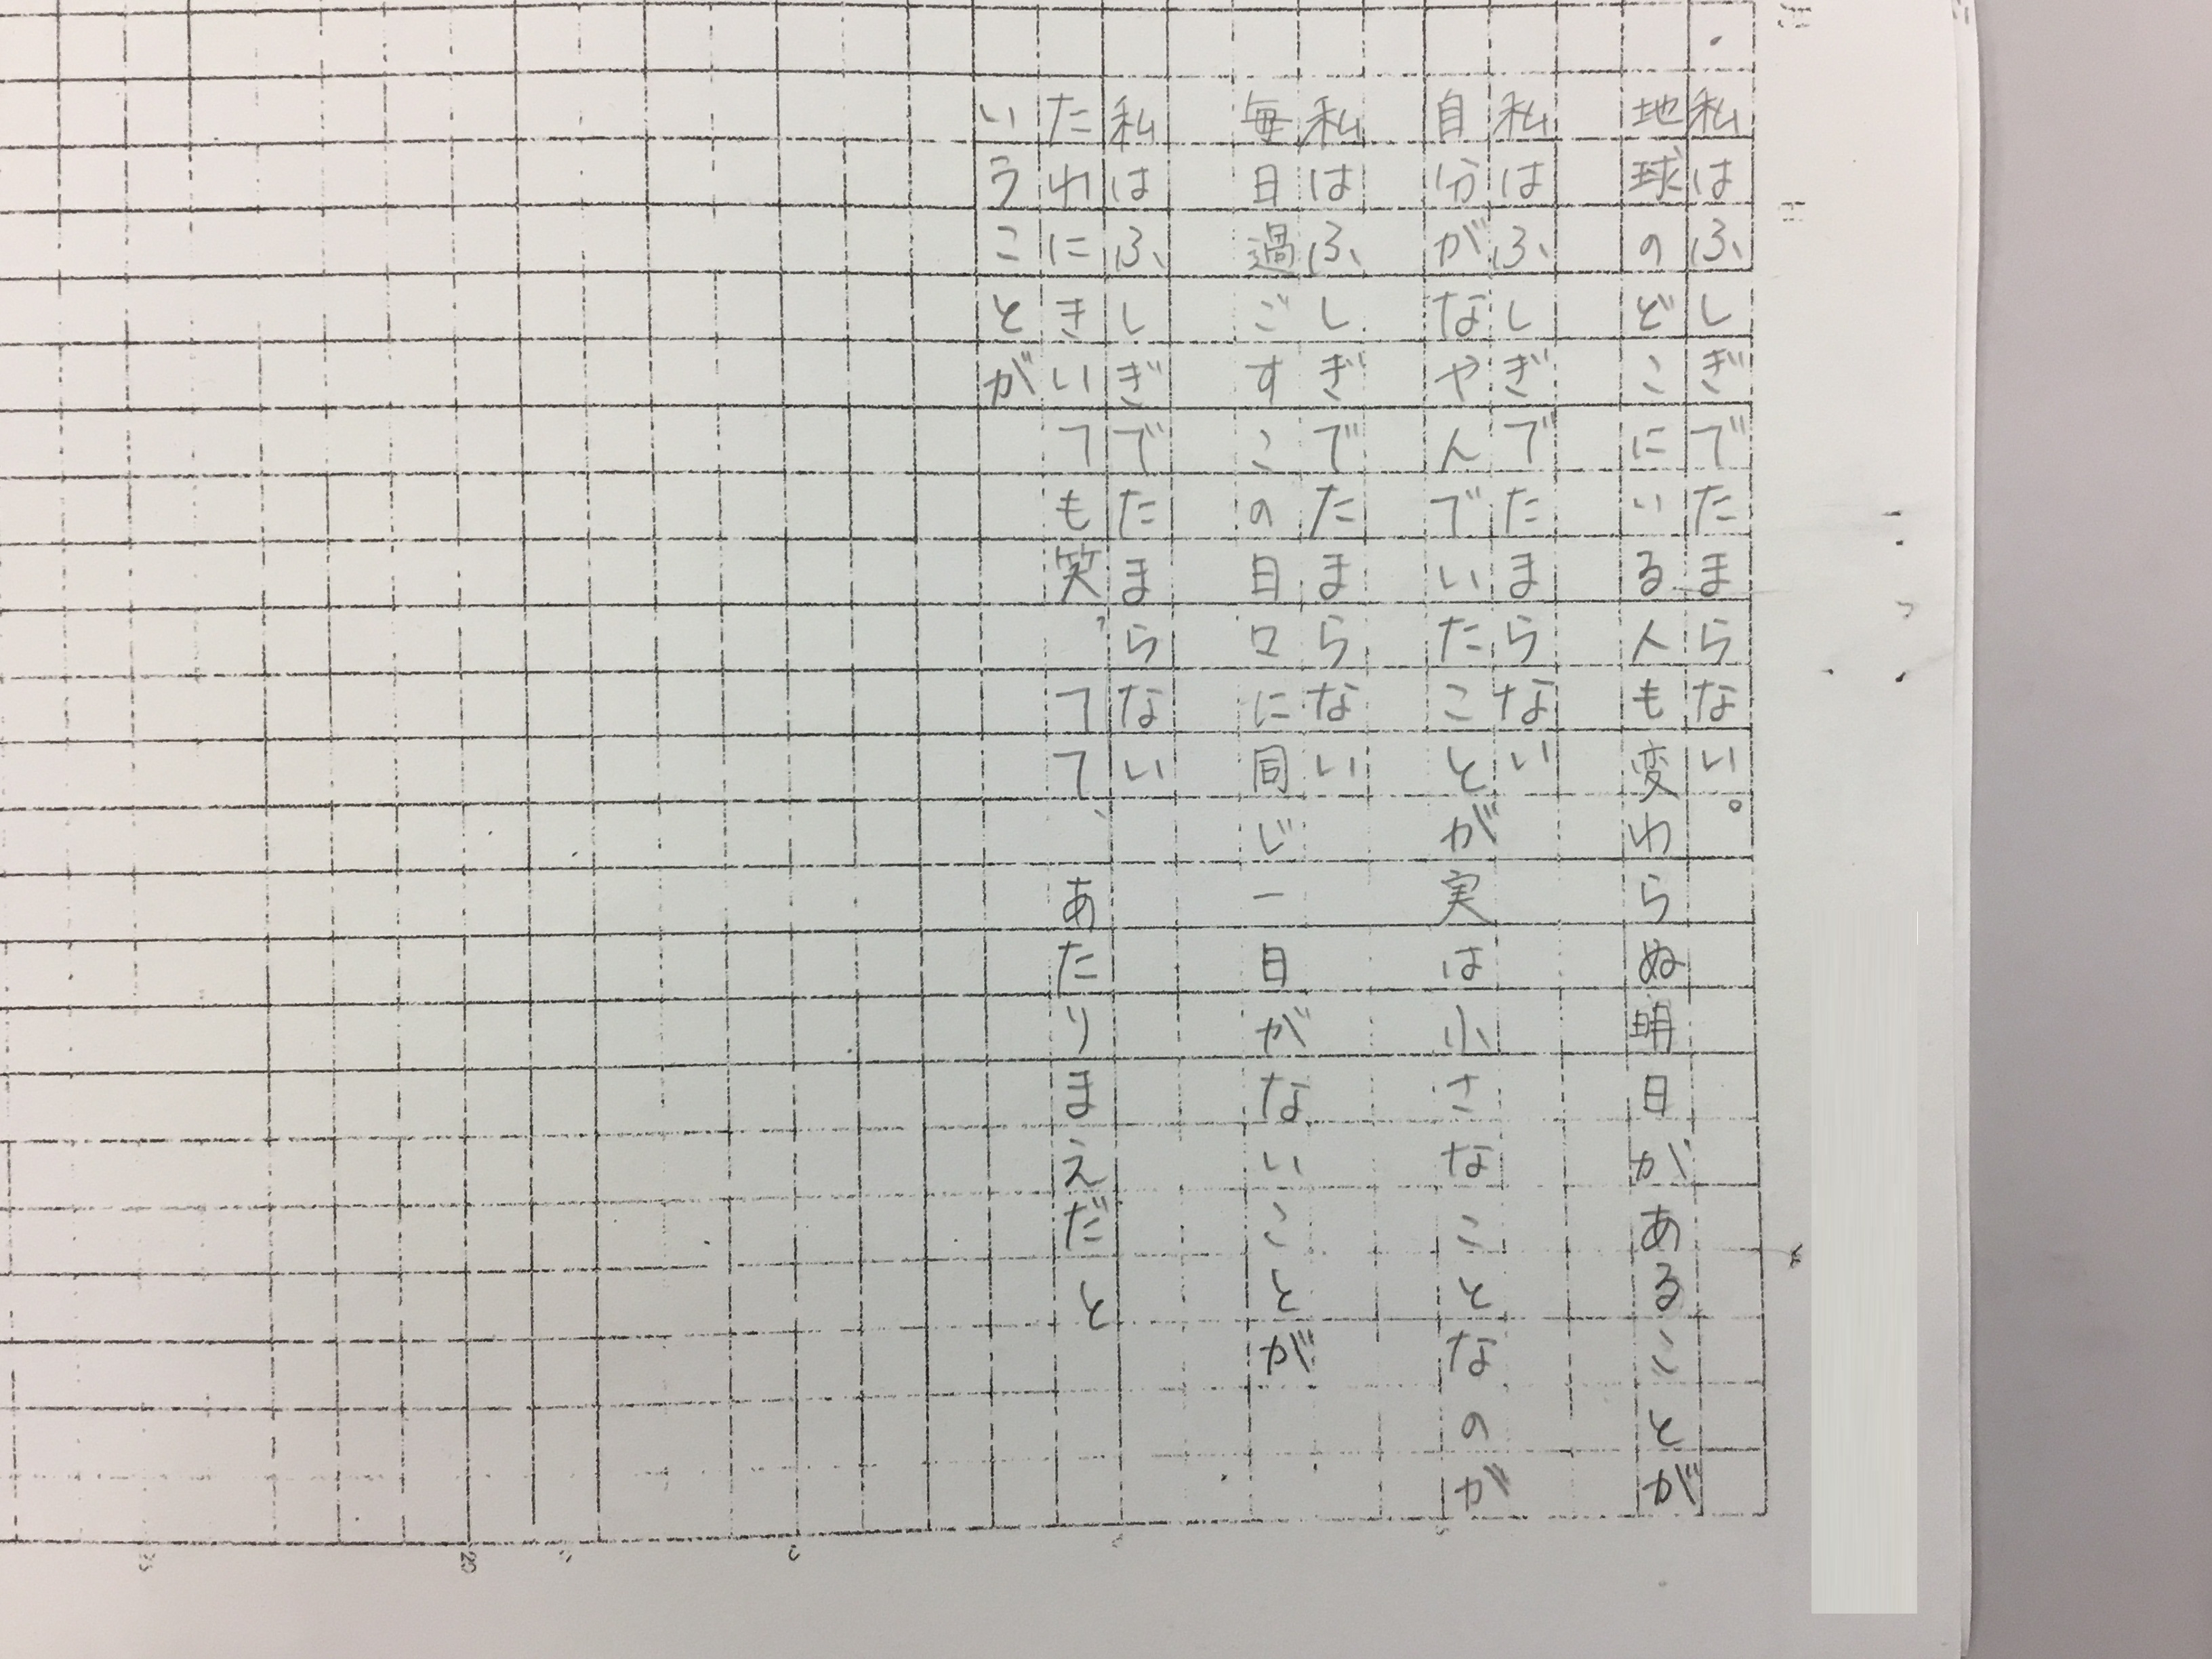 私はふしぎでたまらない。
地球のどこにいる人も変わらぬ明日があることが
私はふしぎでたまらない
自分がなやんでいたことが実は小さなことなのが
私はふしぎでたまらない
毎日過ごすこの日々に同じ一日がないことが
私はふしぎでたまらない
たわにきいても笑ってて、あたりまえだと
いうことが
20